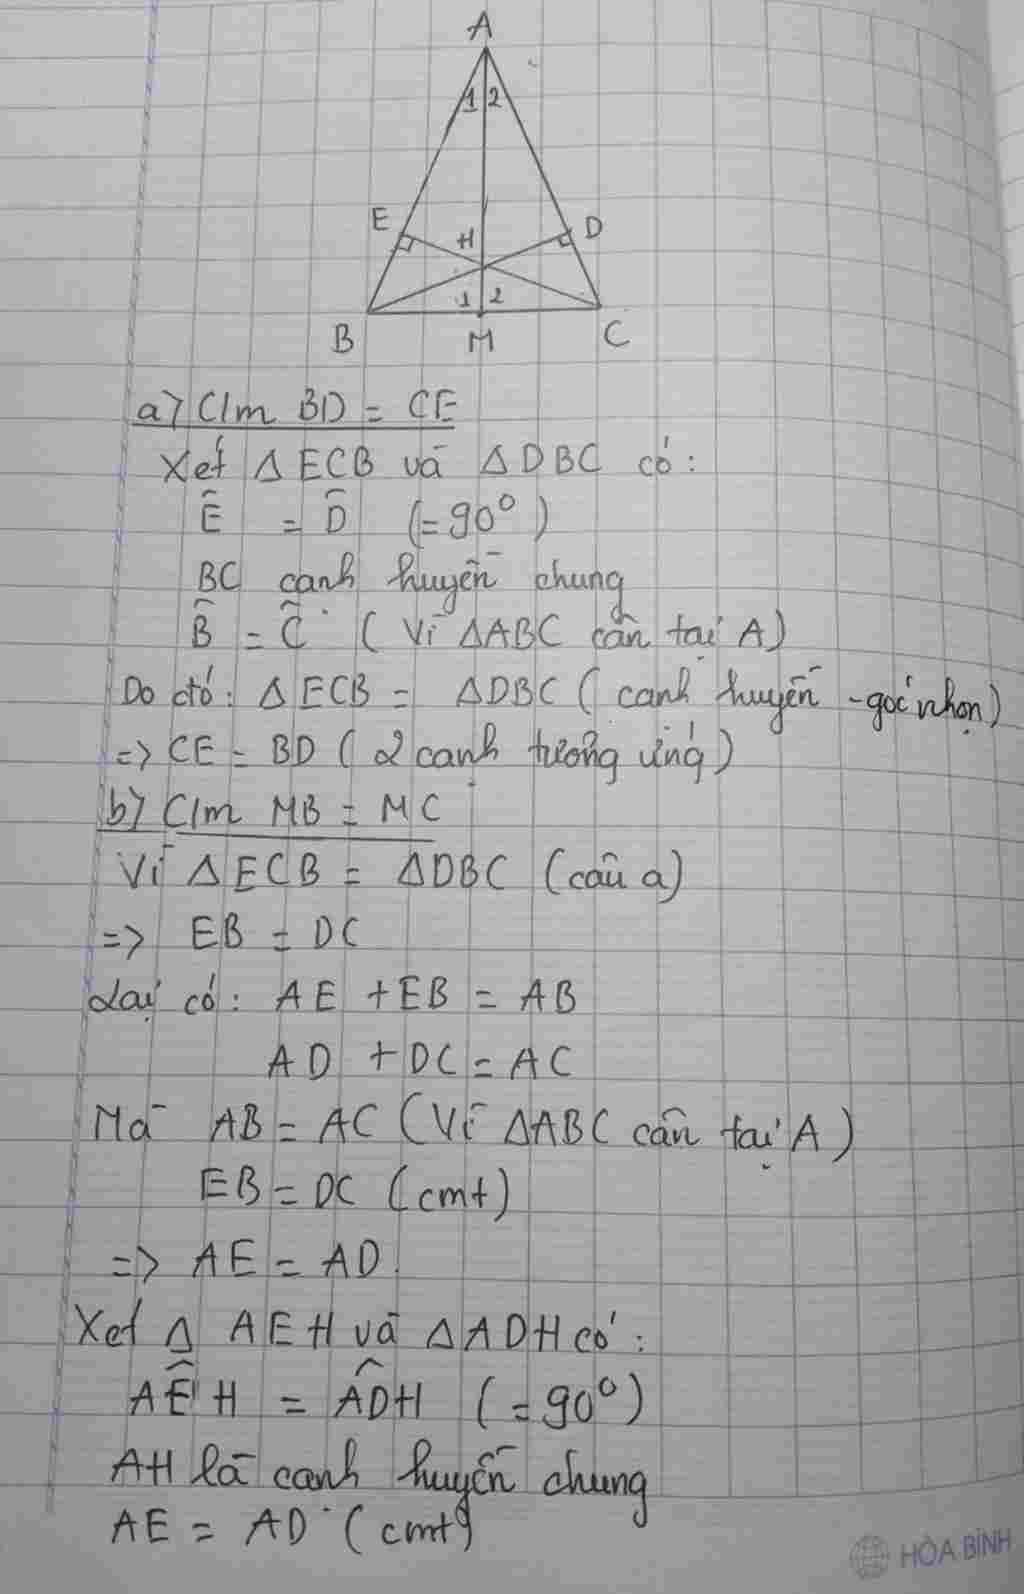 A
1 2
E H D
1 2
B M C
a) C/m BD = CE
Xét Δ ECB và Δ DBC có:
Ê = D̂ (= 90°)
BC cạnh huyền chung
B̂ = Ĉ (Vì ΔABC cân tại A)
Do đó: Δ ECB = ΔDBC (cạnh huyền - góc nhọn)
=> CE = BD (2 cạnh tương ứng)
b) C/m MB = MC
Vì Δ ECB = ΔDBC (câu a)
=> EB = DC
Lại có: AE + EB = AB
AD + DC = AC
Mà AB = AC (Vì ΔABC cân tại A)
EB = DC (cmt)
=> AE = AD
Xét Δ AEH và ΔADH có:
AÊH = AD̂H (= 90°)
AH là cạnh huyền chung
AE = AD (cmt)
HÒA BÌNH